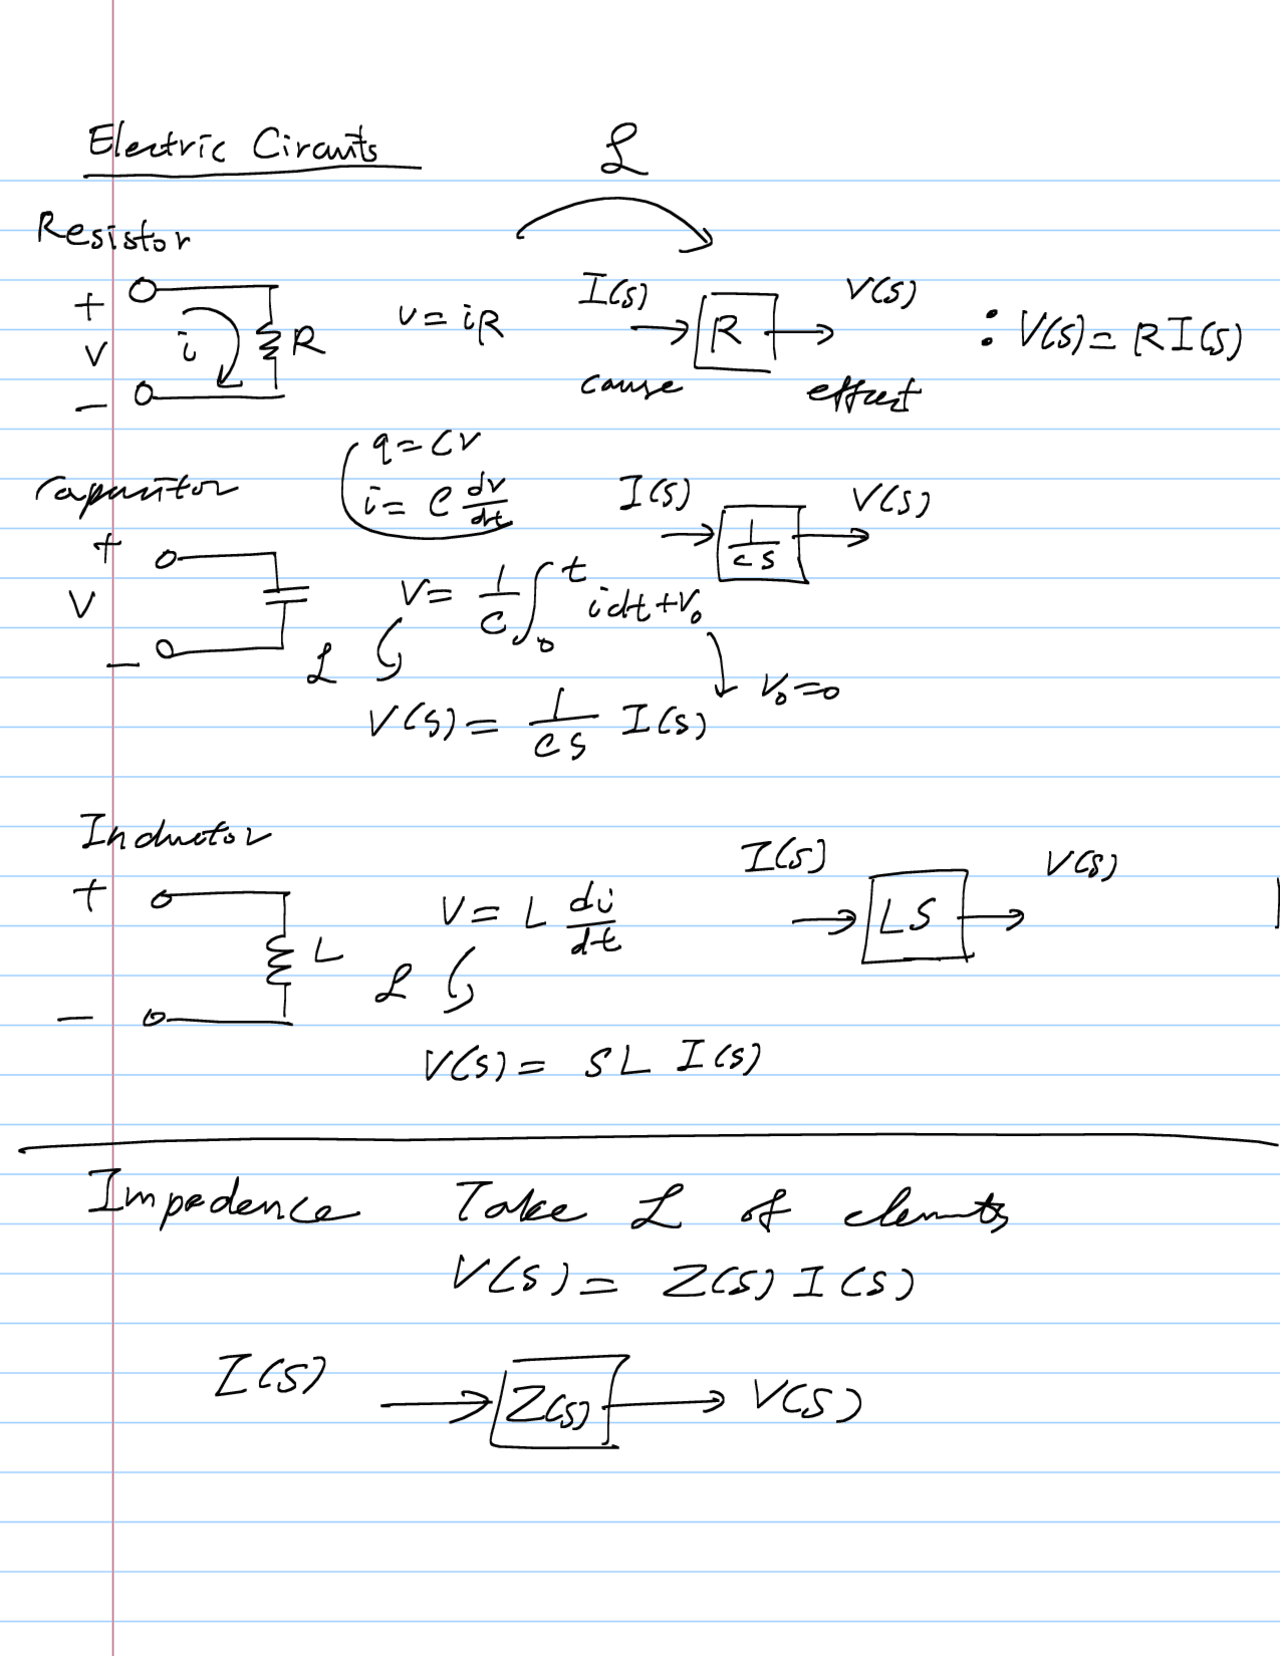 Electric Circuits ℒ
Resistor
+ V − i R v = iR I(s) R V(s) : V(s) = R I(s)
cause effect
Capacitor q = Cv
i = C dv/dt I(s) 1/cs V(s)
+ V − V = 1/C ∫₀ᵗ i dt + V₀
ℒ V₀ = 0
V(s) = 1/cs I(s)
Inductor
+ − L V = L di/dt I(s) LS V(s)
ℒ
V(s) = SL I(s)
Impedence Take ℒ of elements
V(s) = Z(s) I(s)
I(s) Z(s) V(s)